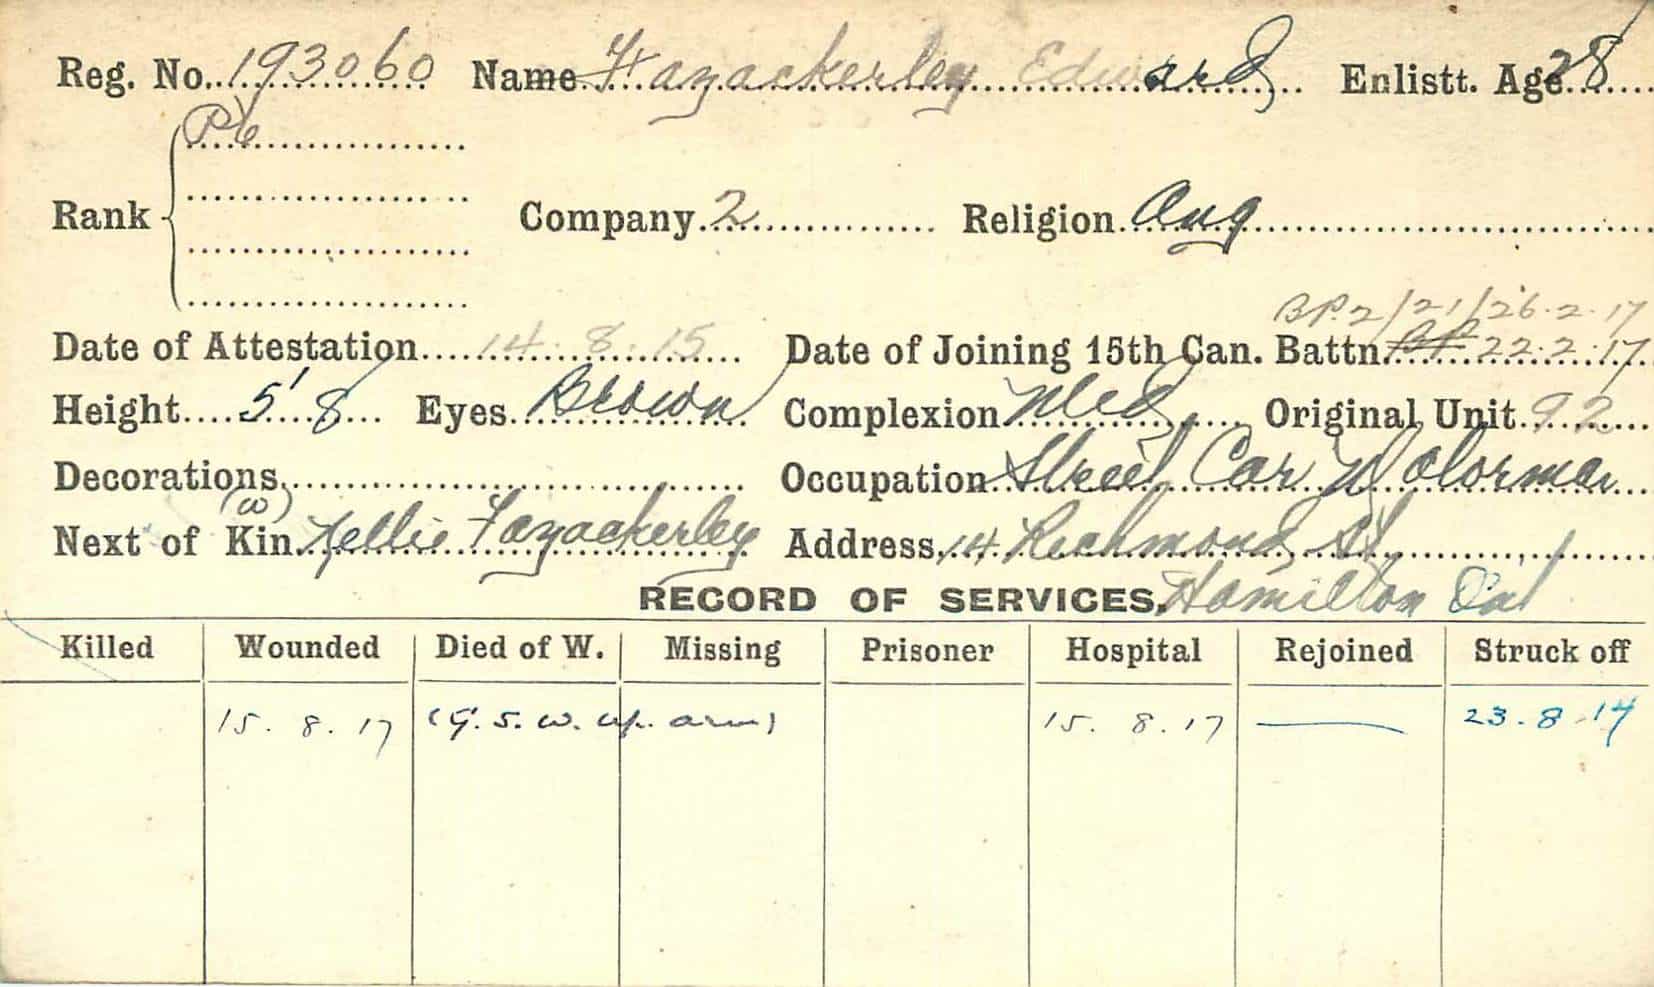 Reg. No. 193060 Name Fazackerley Edward Enlistt. Age 28
Pte
Rank Company 2 Religion Ang
B.P. 2/21/26.2.17
Date of Attestation 14.8.15 Date of Joining 15th Can. Battn. 22.2.17
Height 5' 8 Eyes Brown Complexion Med. Original Unit 92
Decorations Occupation Street Car Motorman
(W)
Next of Kin Nellie Fazackerley Address 14 Richmond St,
RECORD OF SERVICES. Hamilton Ont
Killed Wounded Died of W. Missing Prisoner Hospital Rejoined Struck off
15. 8. 17 (G. S. W. up. arm) 15. 8. 17 — 23. 8. 17